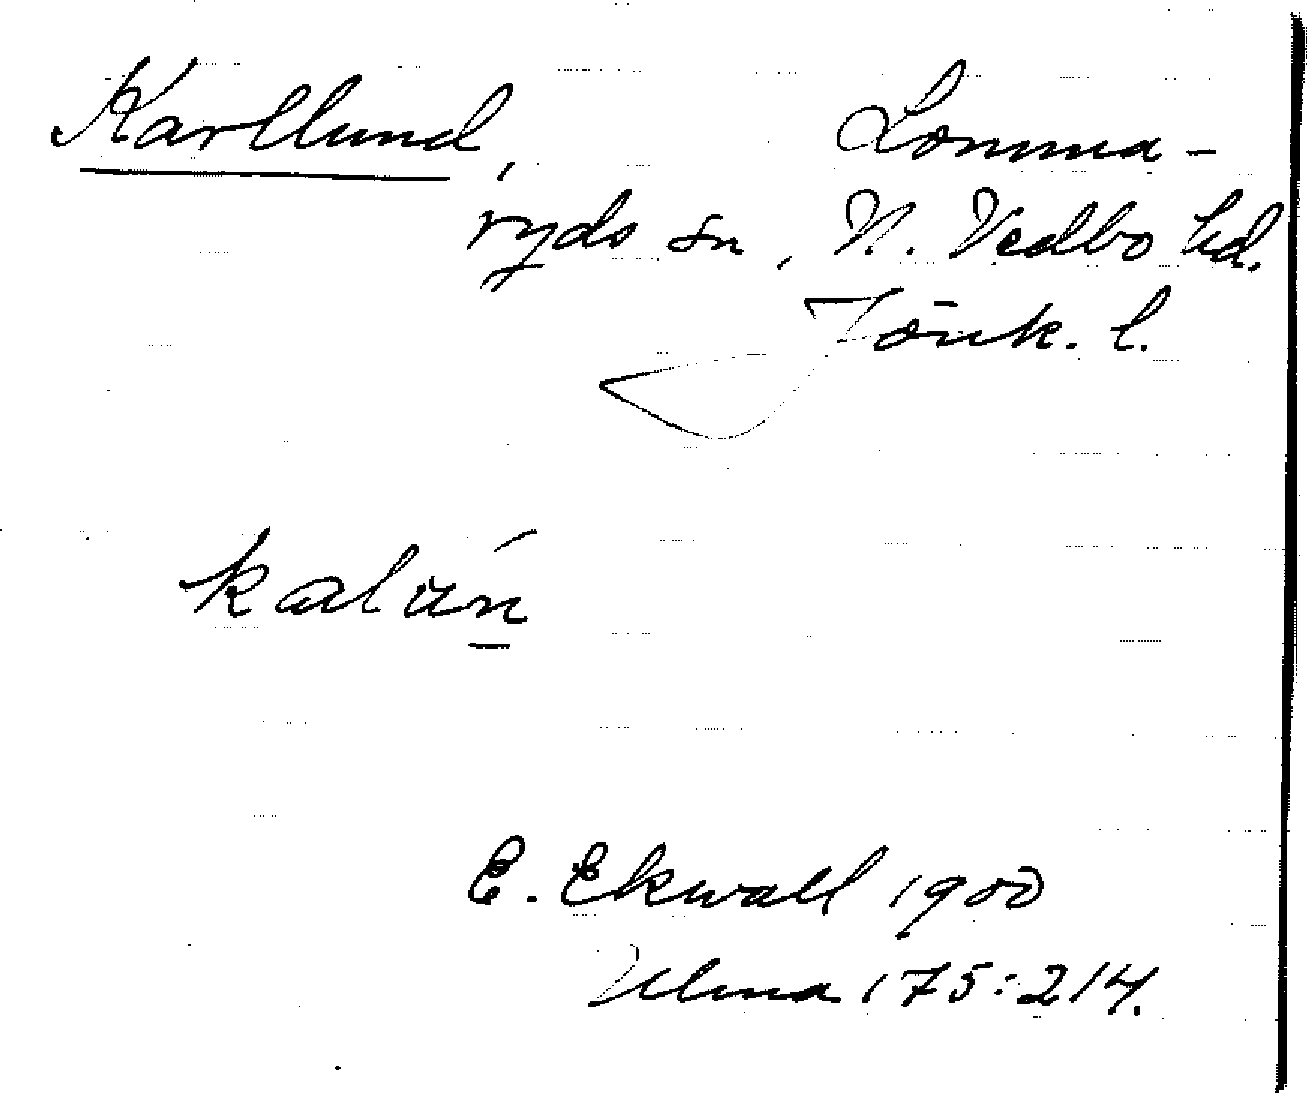 Karllund, Lomma-
ryds sn, N. Vedbo hd.
Jönk. l.
E. Ekwall 1900
Ulma 175:214.